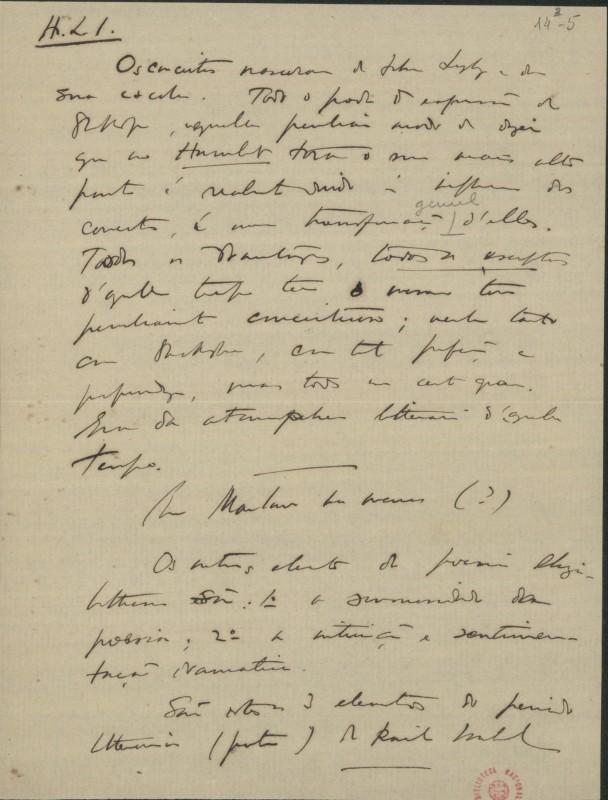 H. L. I.
14³-5
Os conceitos nasceram de John Lyly e da
sua escola. Todo o poder de expressão de
Shakespeare, aquella peculiar modo de dizer
que no Hamlet toca o seu mais alto
ponto é realmente devido à influencia dos
conceitos, é uma transformação genial d'elles.
Todos os dramaturgos, todos os escriptores
d'aquelle tempo teem o mesmo tom
peculiarmente conceituoso; nem tanto
como Shakespeare, com tal perfeição e
profundeza, mas todos em certo grau.
Era da atmosphera litteraria d'aquelle
tempo.
(?)
Os outros elementos da poesia eliza-
bethana são: 1º a sonoridade da
poesia; 2º a intuição e sentimen-
tação dramatica.
São estes os 3 elementos do periodo
litterario (poetico) de
BIBLIOTECA NACIONAL